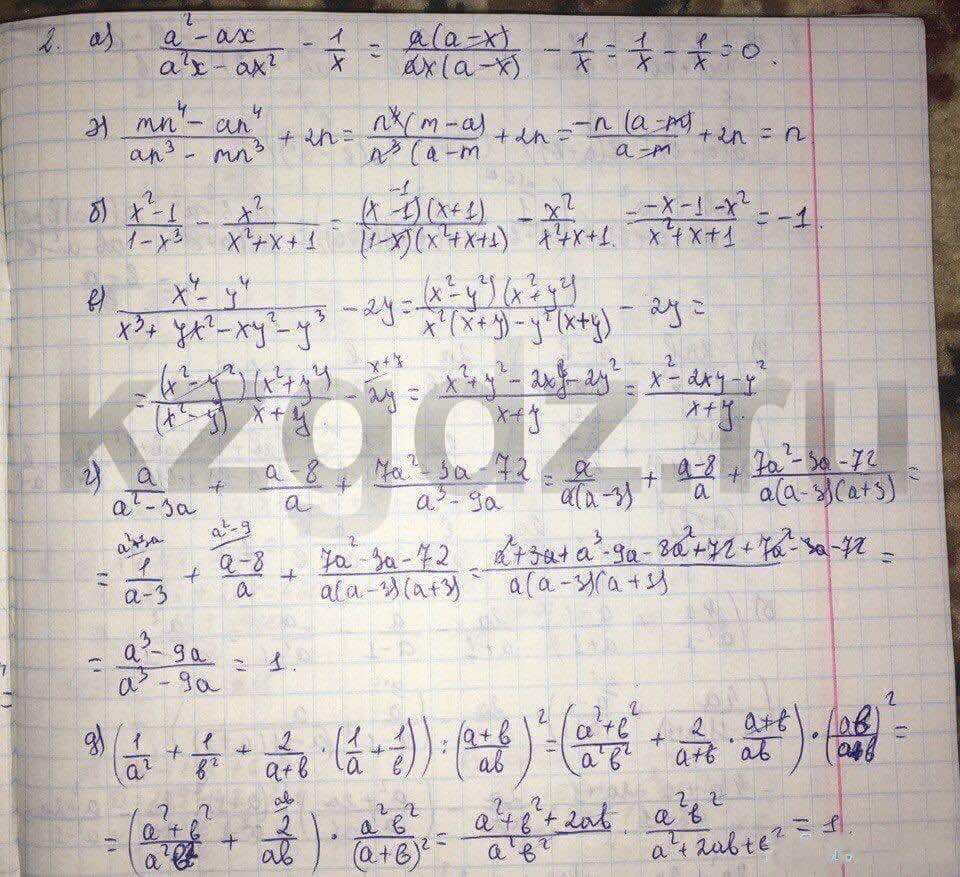 2. а) (a² - ax)/(a²x - ax²) - 1/x = a(a-x)/(ax(a-x)) - 1/x = 1/x - 1/x = 0.
д) (mn⁴ - an⁴)/(an³ - mn³) + 2n = n⁴(m-a)/(n³(a-m) + 2n = -n(a-m)/(a-m) + 2n = n
б) (x²-1)/(1-x³) - x²/(x²+x+1) = (x-1)(x+1)/((1-x)(x²+x+1)) - x²/(x²+x+1) = (-x-1-x²)/(x²+x+1) = -1.
е) (x⁴ - y⁴)/(x³ + yx² - xy² - y³) - 2y = (x²-y²)(x²+y²)/(x²(x+y) - y²(x+y)) - 2y =
= (x²-y²)(x²+y²)/((x²-y²) x+y) - 2y = (x²+y² - 2xy - 2y²)/(x+y) = (x² - 2xy - y²)/(x+y).
г) a/(a²-3a) + (a-8)/a + (7a²-3a-72)/(a³-9a) = a/(a(a-3)) + (a-8)/a + (7a²-3a-72)/(a(a-3)(a+3)) =
= 1/(a-3) + (a-8)/a + (7a²-3a-72)/(a(a-3)(a+3)) = (a²+3a+a³-9a-8a²+72+7a²-3a-72)/(a(a-3)(a+3)) =
= (a³-9a)/(a³-9a) = 1.
д) (1/a² + 1/в² + 2/(a+в) · (1/a + 1/в)) : ((a+в)/(aв))² = ((a²+в²)/(a²в²) + 2/(a+в) · (a+в)/(aв)) · (aв/(a+в))² =
= ((a²+в²)/(a²в²) + 2/(aв)) · a²в²/(a+в)² = (a²+в²+2aв)/(a²в²) · a²в²/(a²+2aв+в²) = 1.
kzgdz.ru